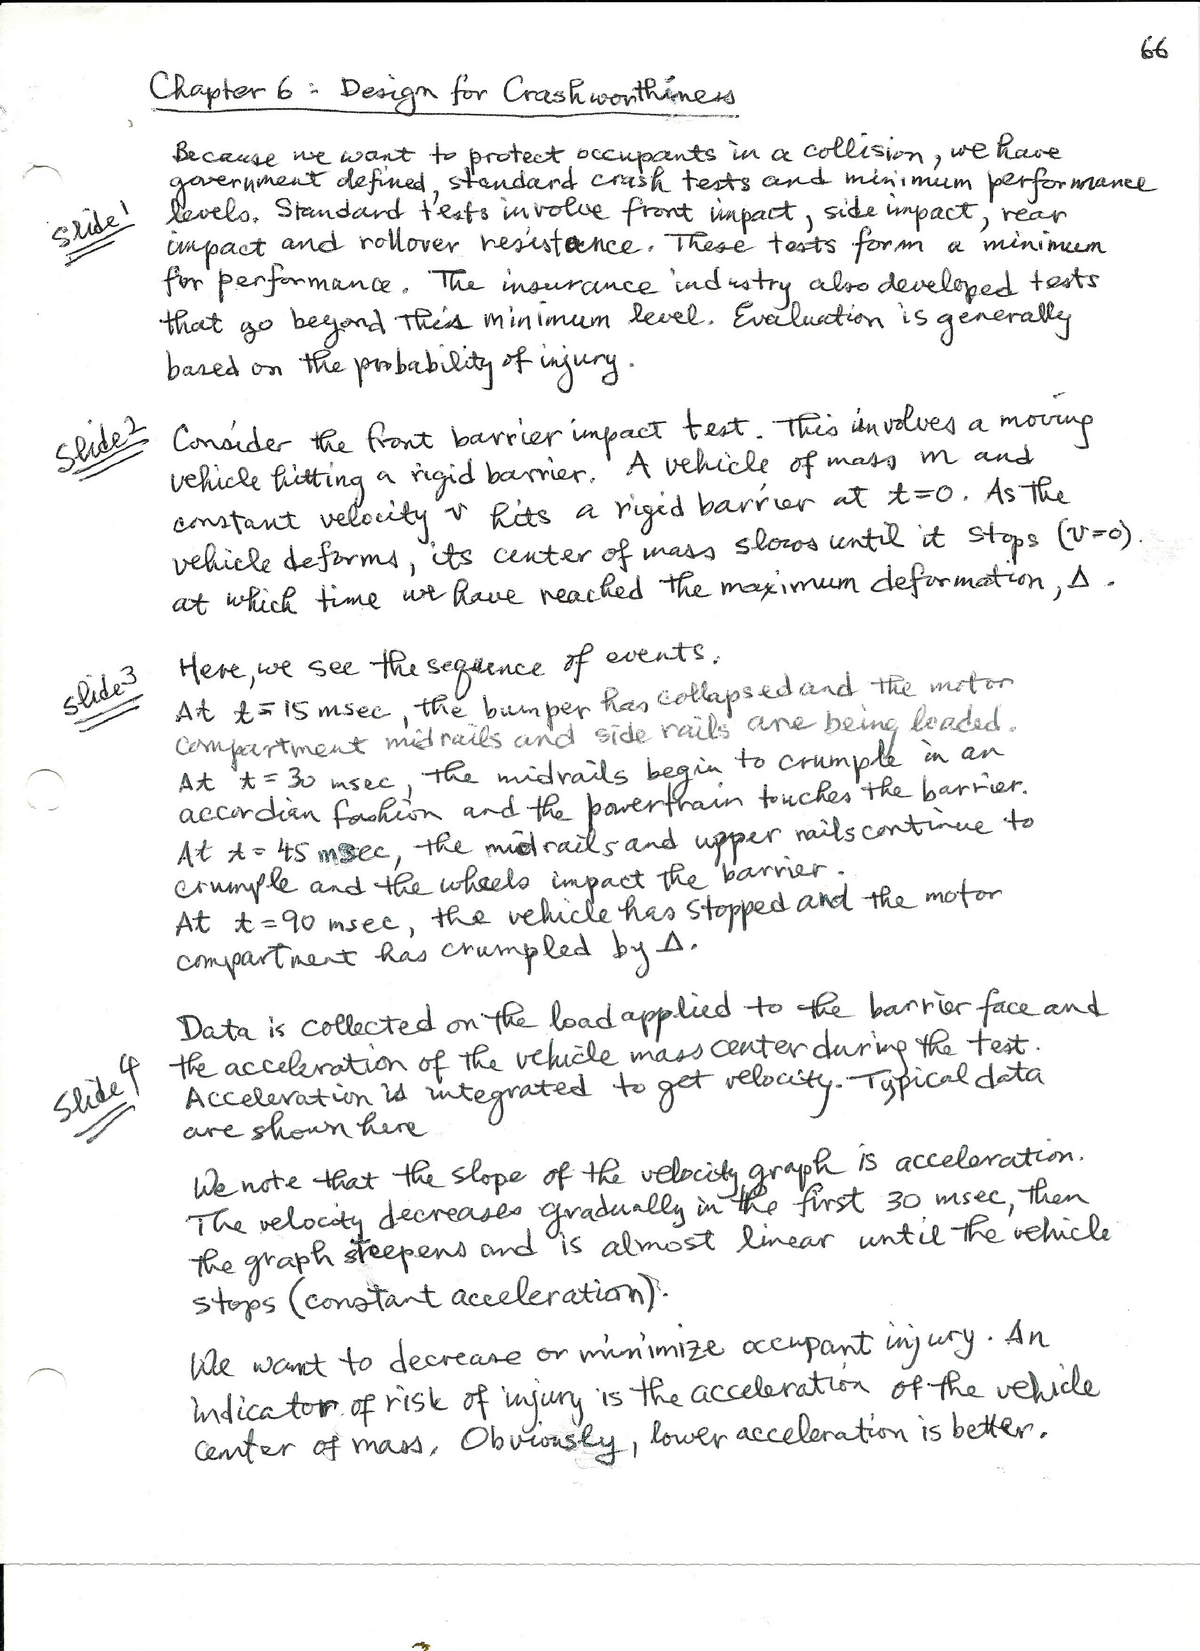 66
Chapter 6: Design for Crashworthiness
Because we want to protect occupants in a collision, we have
government defined, standard crash tests and minimum performance
Slide 1
levels. Standard tests involve front impact, side impact, rear
impact and rollover resistance. These tests form a minimum
for performance. The insurance industry also developed tests
that go beyond this minimum level. Evaluation is generally
based on the probability of injury.
Slide 2
Consider the front barrier impact test. This involves a moving
vehicle hitting a rigid barrier. A vehicle of mass m and
constant velocity v hits a rigid barrier at t=0. As the
vehicle deforms, its center of mass slows until it stops (v=0).
at which time we have reached the maximum deformation, Δ.
Slide 3
Here, we see the sequence of events.
At t=15 msec, the bumper has collapsed and the motor
compartment midrails and side rails are being loaded.
At t=30 msec, the midrails begin to crumple in an
accordian fashion and the powertrain touches the barrier.
At t=45 msec, the midrails and upper rails continue to
crumple and the wheels impact the barrier.
At t=90 msec, the vehicle has stopped and the motor
compartment has crumpled by Δ.
Slide 4
Data is collected on the load applied to the barrier face and
the acceleration of the vehicle mass center during the test.
Acceleration is integrated to get velocity. Typical data
are shown here
We note that the slope of the velocity graph is acceleration.
The velocity decreases gradually in the first 30 msec, then
the graph steepens and is almost linear until the vehicle
stops (constant acceleration).
We want to decrease or minimize occupant injury. An
indicator of risk of injury is the acceleration of the vehicle
center of mass. Obviously, lower acceleration is better.